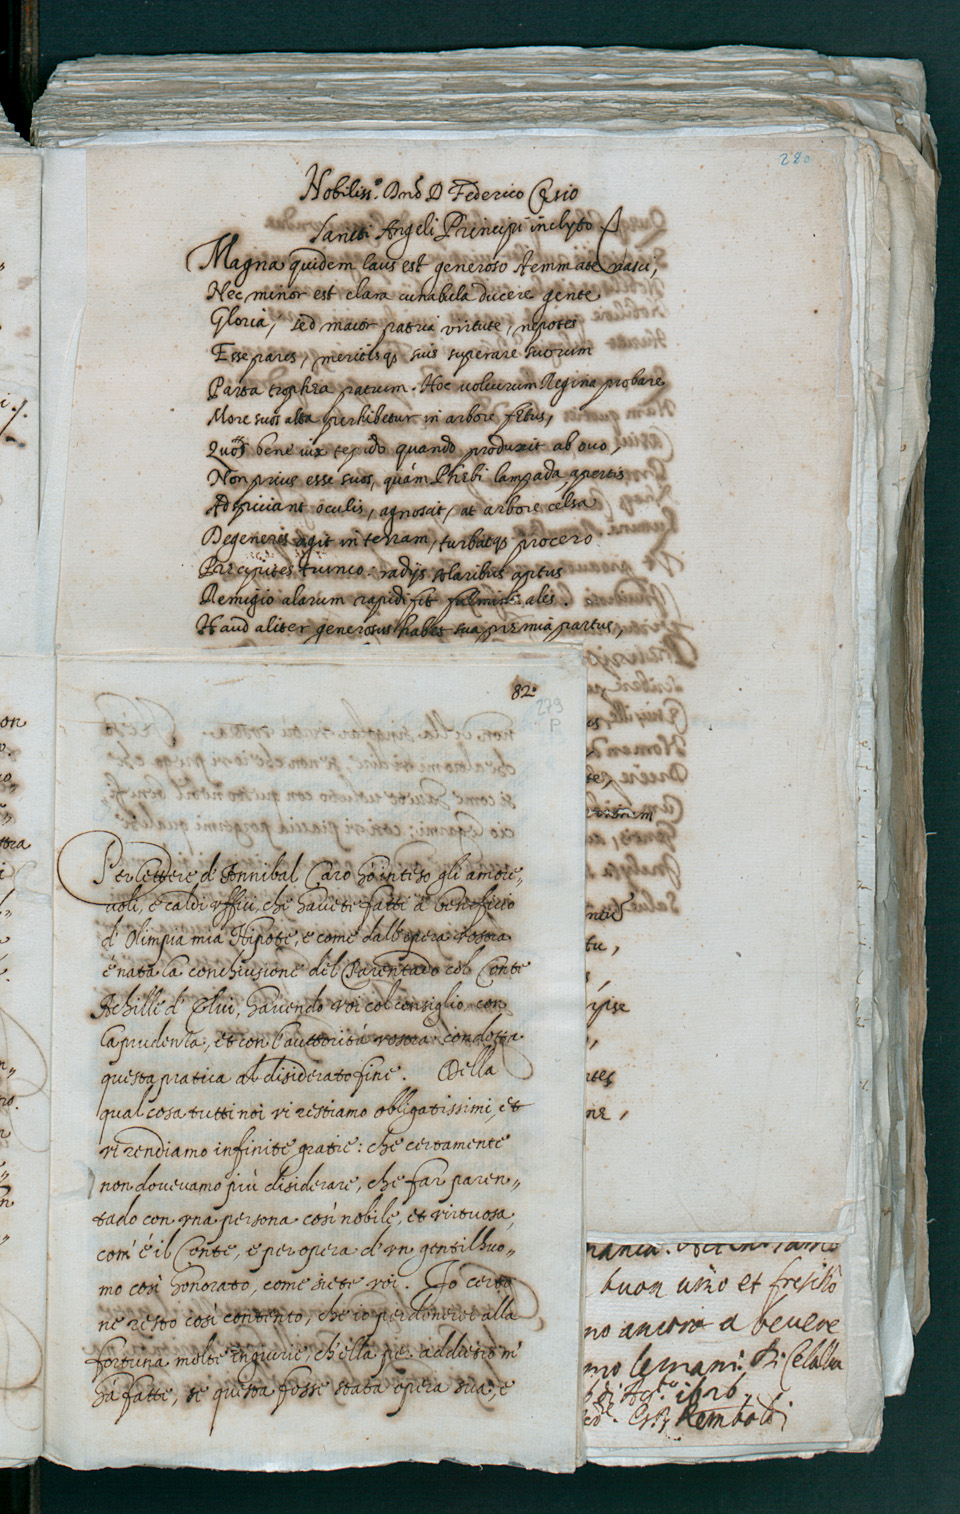 280
Nobiliss.º Dnõ D Federico Cæsio
Sancti Angeli Principi inclyto
Magna quidem laus est generoso stemmate nasci,
Nec minor est clara cunabula ducere gente
Gloria, sed maior patria virtute, nepotes
Esse pares, meritisqȝ suis superare suorum
Parta trophæa patrum. Hoc volucrum Regina probare
More suos alta perhibetur in arbore fætus,
Quos bene vix tepido quando produxit ab ouo,
Non prius esse suos, quàm Phæbi lampada apertis
Adspiciant oculis, agnoscit, at arbore celsa
Degeneres agit in terram, turbatqȝ procero
Præcipites trunco: radijs solaribus aptus
Remigio alarum rapidi fit fulminis ales.
Haud aliter generosus habet sua præmia partus,
82.
279
P
Per lettere d'Annibal Caro hò inteso gli amore„
uoli, e caldi uffici, che hauete fatti à beneficio
d'Olimpia mia Nipote, e come dall'opera vostra
è nata la conchiusione del Parentado col Conte
Achille d'Elui, hauendo voi col consiglio, con
la prudenza, et con l'auttorità vostra condotta
questa pratica al disiderato fine. Della
qual cosa tutti noi vi restiamo obligatissimi, et
vi rendiamo infinite gratie: che certamente
non doueuamo più disiderare, che far paren„
tado con vna persona così nobile, et virtuosa,
com'è il Conte, e per opera d'vn gentilhuo„
mo così honorato, come siete voi. Io certo
ne resto così contento, che io perdonerei alla
fortuna molte ingiurie, ch'ella per addietro m'
hà fatte, se questa fosse stata opera sua, e
buon uino et freschi
no ancora a beuere
mo le mani. Di Cella
1626
Rembaldi